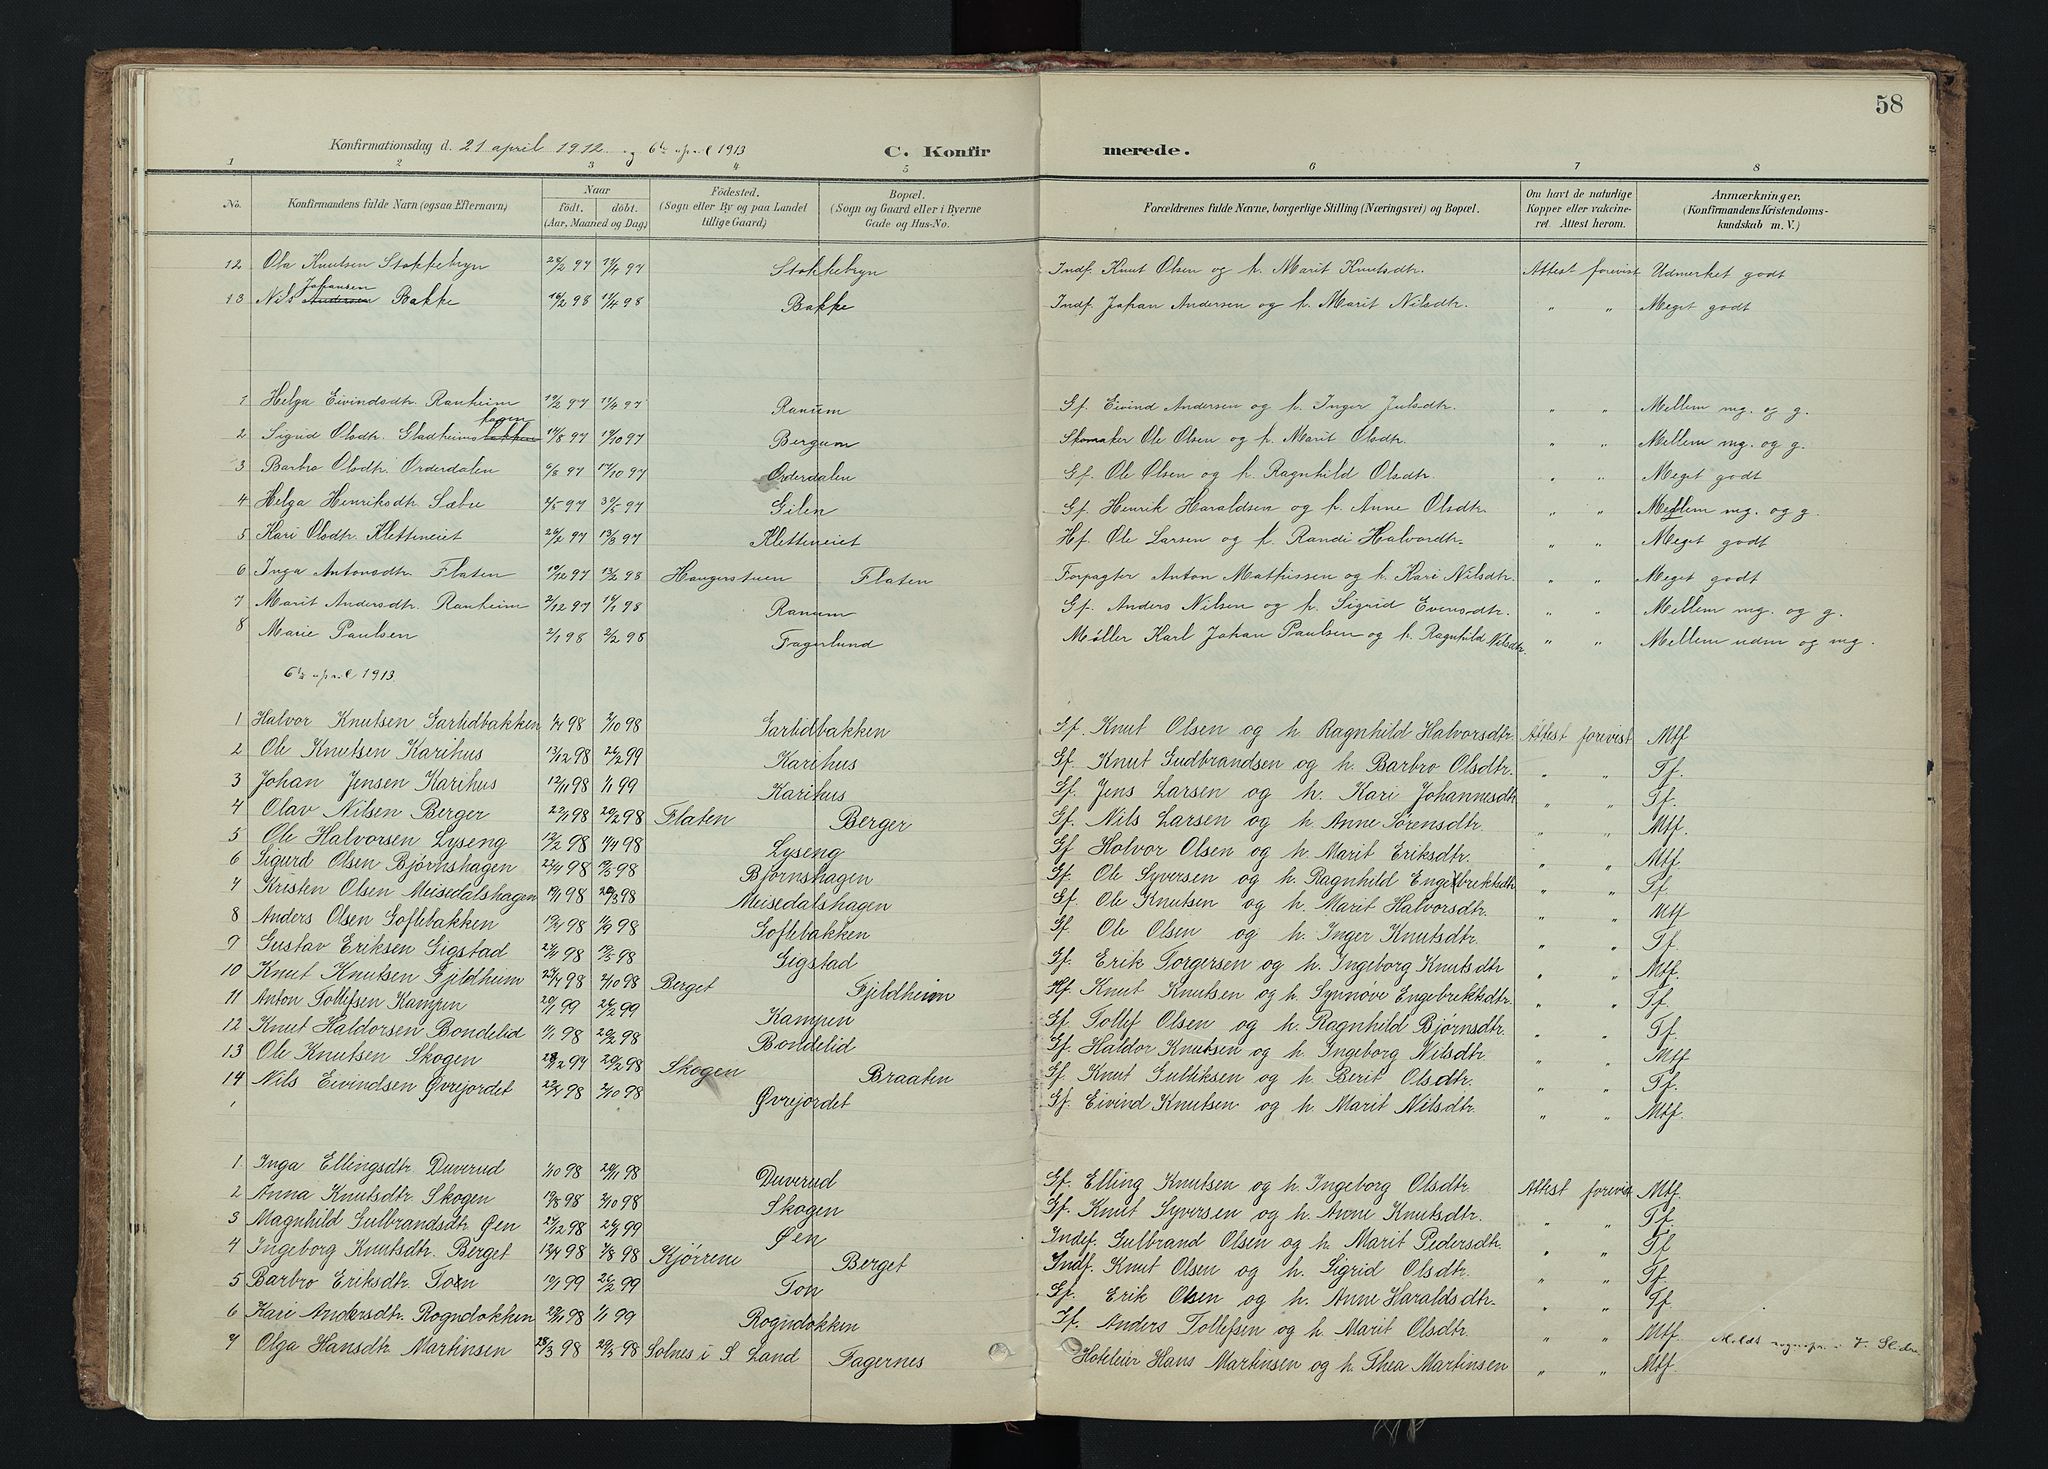 58
Konfirmationsdag d. 21 april 1912 og 6te april 1913
C. Konfirmerede.
1 2 3 4 5 6 7 8
No. Konfirmandens fulde Navn (ogsaa Efternavn) Naar födt. döbt. (Aar, Maaned og Dag) Födested. (Sogn eller By og paa Landet tillige Gaard) Bopæl. (Sogn og Gaard eller i Byerne Gade og Hus-No. Forældrenes fulde Navne, borgerlige Stilling (Næringsvei) og Bopæl. Om havt de naturlige Kopper eller vakcineret Attest herom. Anmærkninger. (Konfirmandens Kristendomskundskab m. V.)
12 Ola Knutsen Stokkebryn 97 97 Stokkebryn Indf. Knut Olsen og h. Marit Knutsdtr. Attest forevist Udmerket godt
13 Nils Andersen Johansen Bakke 16/2 98 98 Bakke Indf. Johan Andersen og h. Marit Nilsdtr. " " Meget godt
1 Helga Eivindsdtr. Ranheim 97 97 Ranum Gf. Eivind Andersen og h. Inger Julsdtr. " " Mellem mg. og g.
2 Sigrid Olsdtr. Gladheimsbakken hagen 97 97 Bergum Skomaker Ole Olsen og h. Marit Olsdtr. " " Mellem mg. og g.
3 Barbro Olsdtr. Ørderdalen 97 97 Ørderdalen Gf. Ole Olsen og h. Ragnhild Olsdtr. " " Meget godt
4 Helga Henriksdtr Sæbu 97 30/5 97 Gilen Gf. Henrik Haraldsen og h. Anne Olsdtr. " " Mellem mg. og g.
5 Kari Olsdtr. Kletteneiet 97 97 Kletteneiet Hf. Ole Larsen og h. Randi Halvordtr. " " Meget godt
6 Inga Antonsdtr. Flaten 97 13/2 98 Haugerstuen Flaten Forpagter Anton Mathissen og h. Kari Nilsdtr. " " Meget godt
7 Marit Andersdtr. Ranheim 2/12 97 98 Ranum Gf. Anders Nilsen og h. Sigrid Evensdtr. " " Mellem mg. og g.
8 Marie Paulsen 2/1 98 2/2 98 Fagerlund Møller Karl Johan Paulsen og h. Ragnhild Nilsdtr. " " Mellem udm og mg.
6te april 1913
1 Halvor Knutsen Garlidbakken 98 98 Garlidbakken Gf. Knut Olsen og h Ragnhild Halvorsdtr Attest forevist Mtf
2 Ole Knutsen Karihus 13/12 98 26/2 99 Karihus Gf. Knut Gudbrandsen og h. Barbro Olsdtr. " " Tf.
3 Johan Jensen Karihus 12/11 98 1/1 99 Karihus Gf. Jens Larsen og h. Kari Johannesdtr " " Tf.
4 Olav Nilsen Berger 22/1 98 20/2 98 Flaten Berger Gf. Nils Larsen og h. Anne Sørensdtr. " " Mtf.
5 Ole Halvorsen Lyseng 12/2 98 98 Lyseng Gf Halvor Olsen og h. Marit Eriksdtr. " " Mtf
6 Sigurd Olsen Bjørnshagen 98 98 Bjørnshagen Gf. Ole Syversen og h. Ragnhild Engebrektsdtr " " Tf
7 Kristen Olsen Meisedalshagen 98 20/3 98 Meisedalshagen Gf. Ole Knutsen og h. Marit Halvorsdtr. " " Mtf
8 Anders Olsen Goflebakken 98 98 Goflebakken Gf Ole Olsen og h. Inger Knutsdtr. " " Tf.
9 Gustav Eriksen Gigstad 98 98 Gigstad Gf. Erik Torgersen og h. Ingeborg Knutsdtr " " Mtf.
10 Knut Knutsen Fjeldheim 98 2/10 98 Berget Fjeldheim Hf. Knut Knutsen og h. Synnøve Engebrektsdtr. " " Tf.
11 Anton Tollefsen Kampen 20/1 99 26/2 99 Kampen Gf. Tollef Olsen og h. Ragnhild Bjørnsdtr. " " Tf.
12 Knut Haldorsen Bondelid 98 20/2 98 Bondelid Gf. Haldor Knutsen og h. Ingeborg Nilsdtr. " " Mtf
13 Ole Knutsen Skogen 97 20/2 98 Skogen Braaten Gf. Knut Gulliksen og h. Berit Olsdtr. " " Tf.
14 Nils Eivindsen Øvrejordet 98 2/10 98 Øvrejordet Gf. Eivind Knutsen og h. Marit Nilsdtr. " " Mtf.
1 Inga Ellingsdtr Duverud 1/10 98 20/11 98 Duverud Gf. Elling Knutsen og h. Ingeborg Olsdtr. Attest forevist Mtf.
2 Anna Knutsdtr Skogen 98 2/10 98 Skogen Gf. Knut Syversen og h. Anne Knutsdtr. " " Tf.
3 Magnhild Gulbrandsdtr Øen 98 99 Øen Indf. Gulbrand Olsen og h. Marit Pedersdtr. " " Tf
4 Ingeborg Knutsdtr. Berget 98 98 Kjørrene Berget Indf. Knut Olsen og h. Sigrid Olsdtr. " " Tf.
5 Barbro Eriksdtr. Ton 99 26/2 99 Ton Gf. Erik Olsen og h. Anne Haraldsdtr. " " Tf.
6 Kari Andersdtr. Rogndokken 98 1/1 99 Rogndokken Gf. Anders Tollefsen og h. Marit Olsdtr. " " Mtf.
7 Olga Hansdtr. Martinsen 28/3 98 98 Solnes i S Land Fagernes Hotkleier Hans Martinsen og h. Thea Martinsen " " Mtf. Meldt sognepr. i V. Slidre